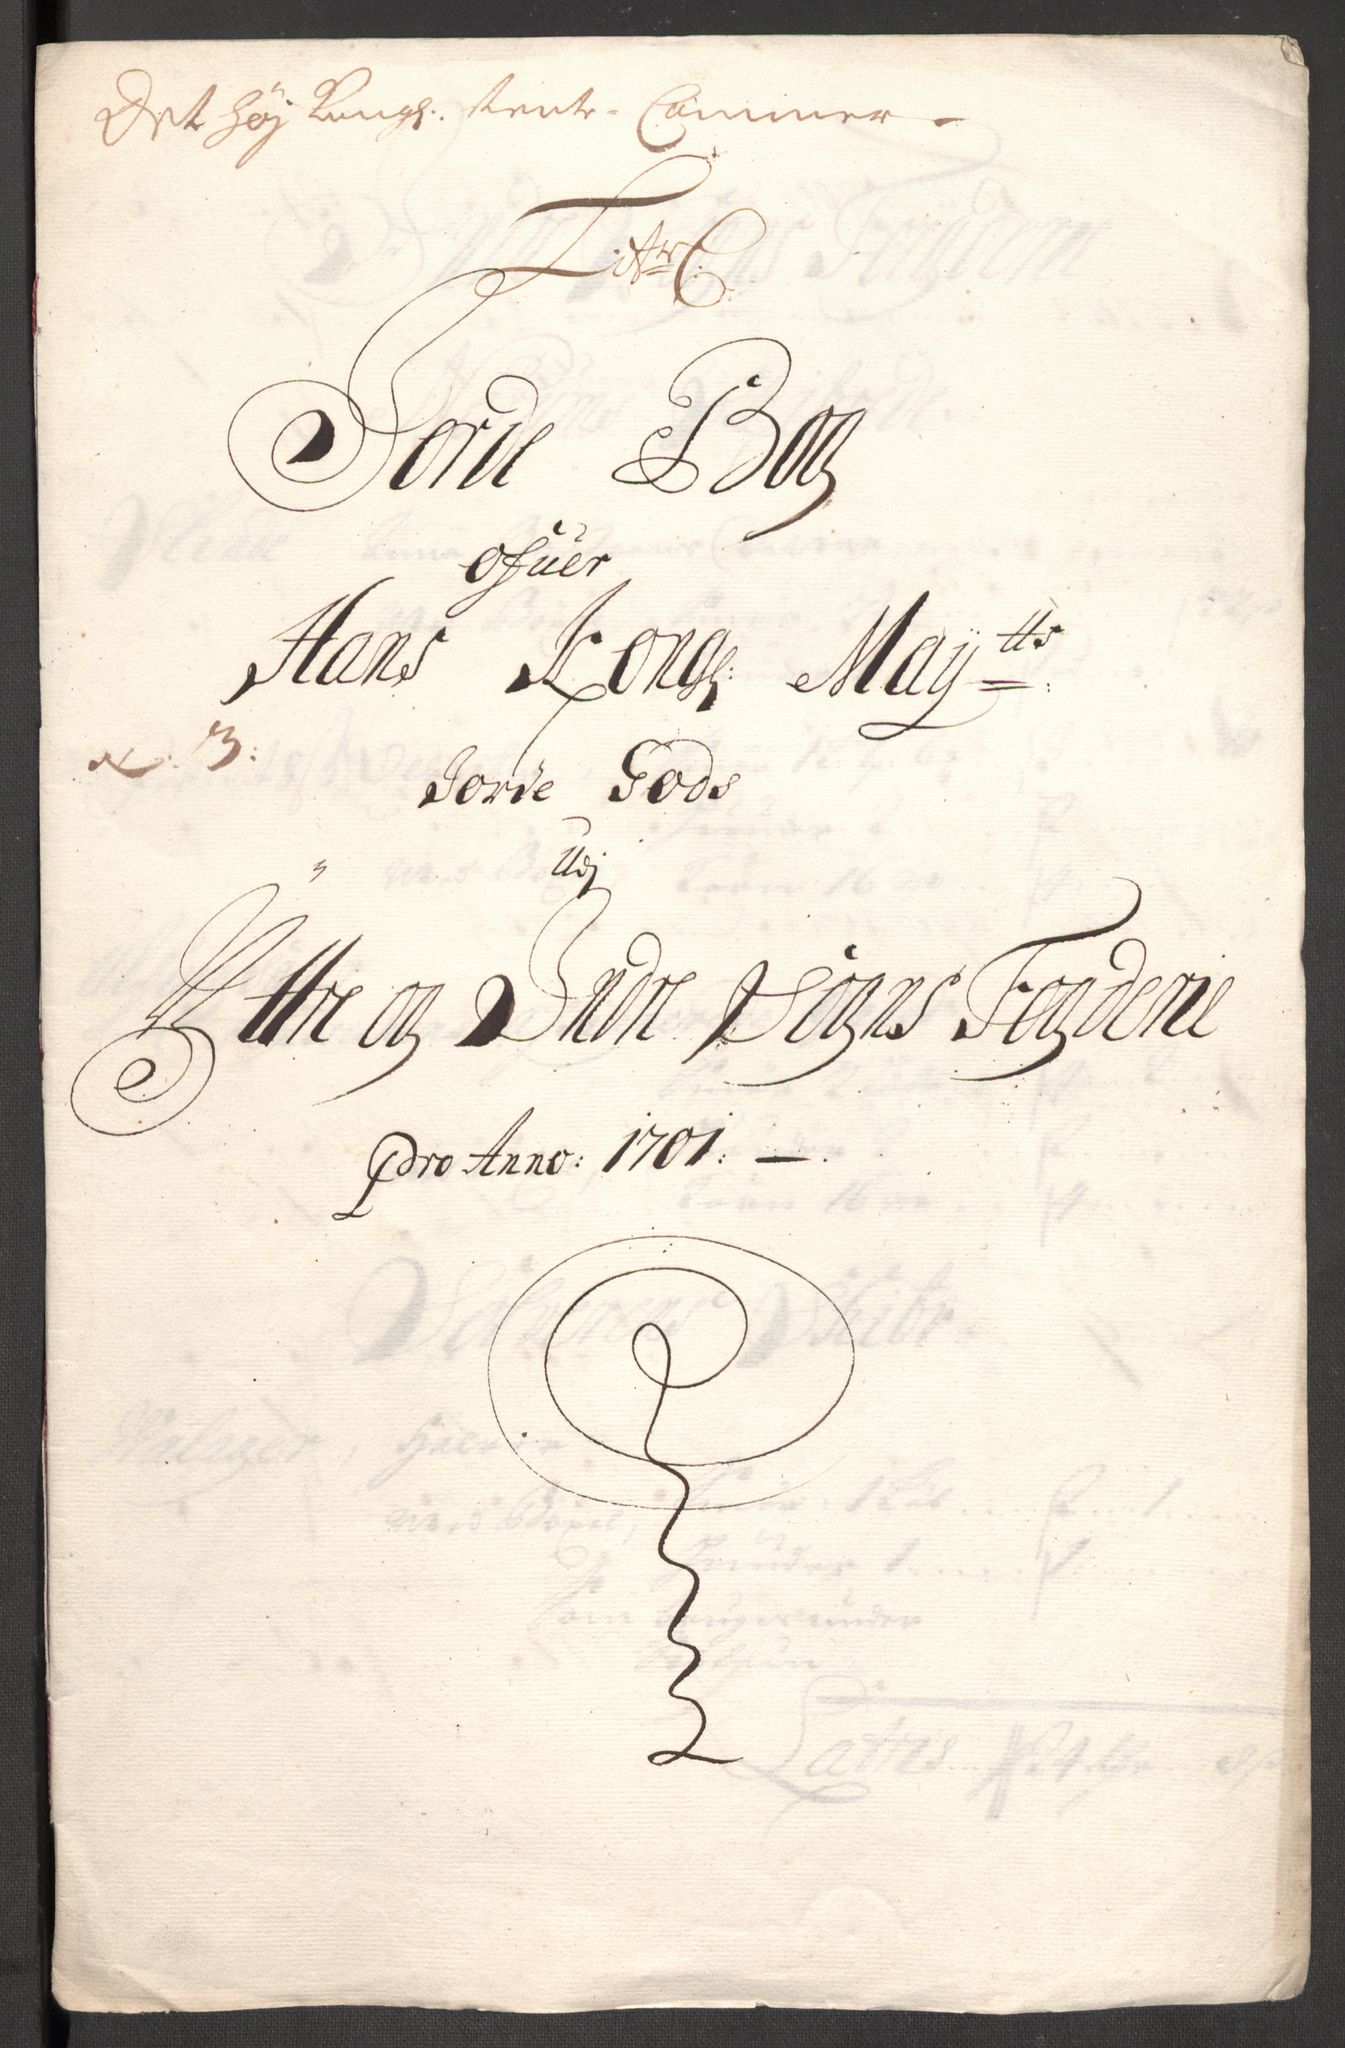 Det höj Kongl. Rente-Cammer-
Litr C.
Jorde Bog
ofuer
Hans Kongl: May.tts
N. 3:
Jorde Gods
Udj
Yttre og Indre Sogns Fogderie
Pro Anno: 1701.